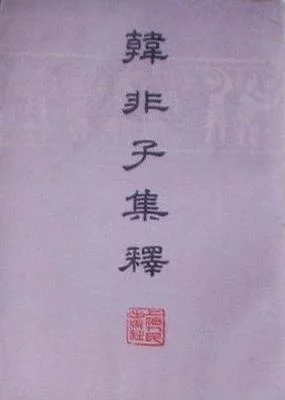 韓非子集釋